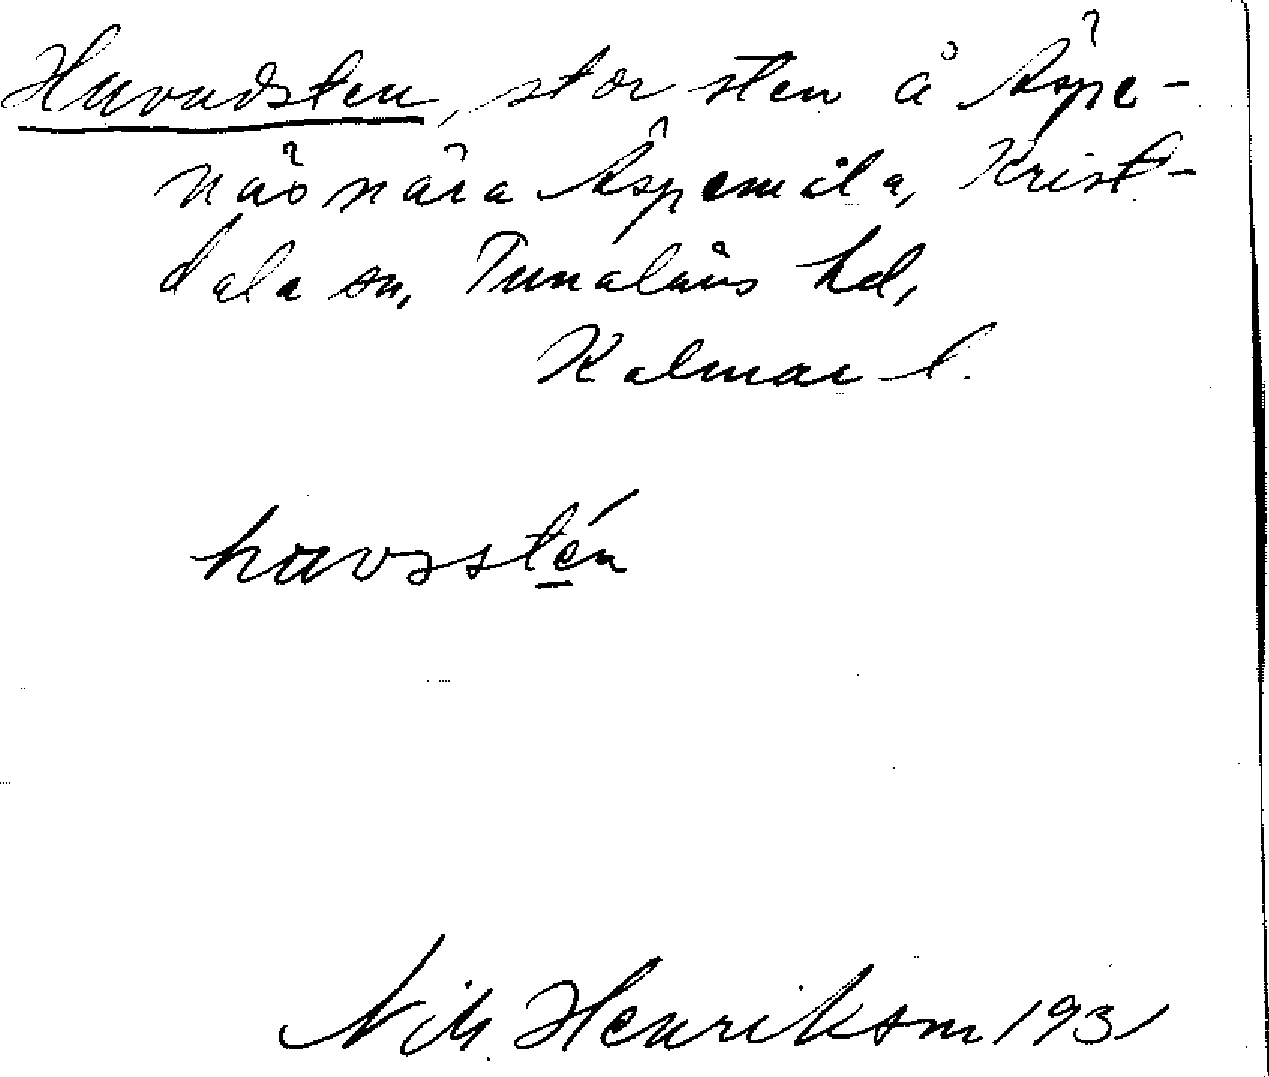 Huvudsten, stor sten å Äspe-
näs nära Äspemåla, Krist-
dala sn, Tunaläns hd,
Kalmar l.
Nils Henrikson 1931